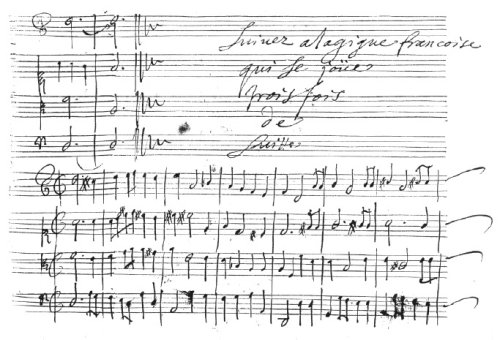 Suivez a la gigue francoise
qui se joüe
trois fois
de
suitte